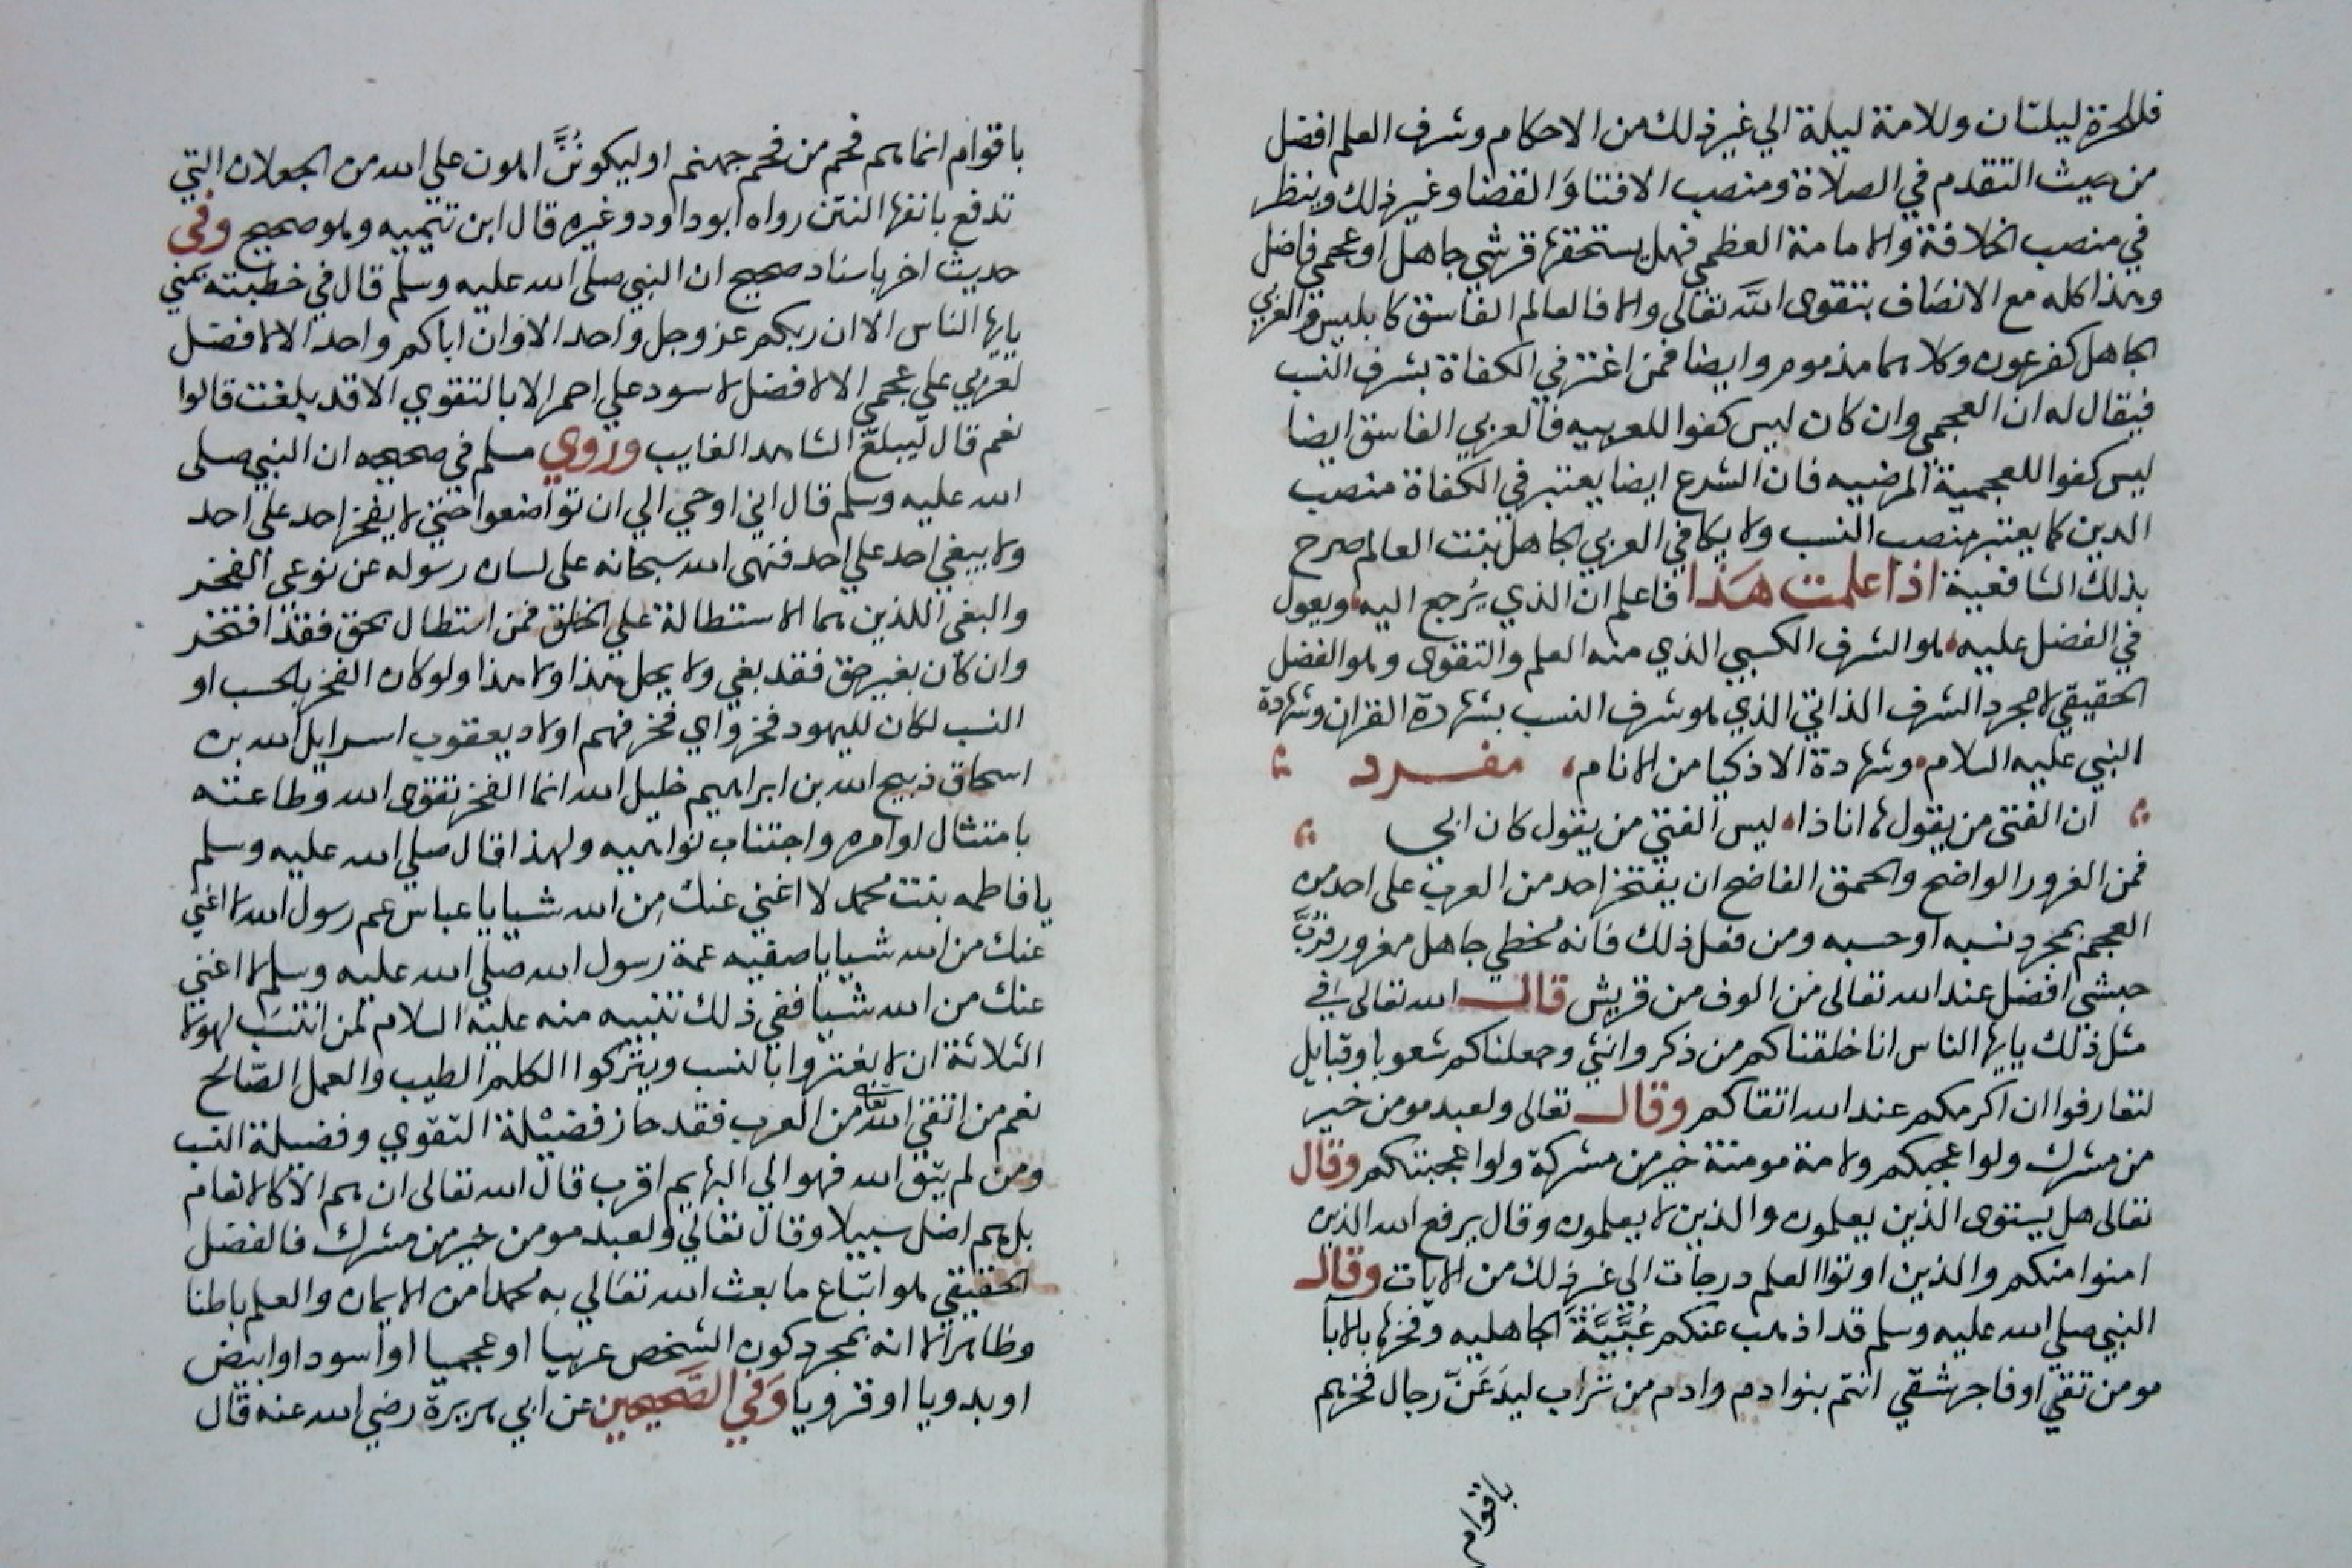 فللحرة ليلتان وللامة ليلة الي غير ذلك من الاحكام وشرف العلم افضل
من حيث التقدم في الصلاة ومنصب الافتا وَالقضا وغير ذلك وينظر
في منصب الخلافة والامامة العظمي فهل يستحقها قرشي جاهل او عجمي فاضل
وهذا كله مع الانصَاف بتقوى اللَّه تعالى والا فالعالم الفاسق كابليس والعربي
الجاهل كفرعون وكلاهما مذموم وايضا فمن اغتر في الكفاة بشرف النسب
فيقال له ان العجمي وان كان ليس كفوا للعربيه فالعربي الفاسق ايضا
ليس كفوا للعجمية المرضيه فان الشرع ايضا يعتبر في الكفاة منصب
الدين كما يعتبر منصب النسب ولا يكافي العربي الجاهل بنت العالم صرح
بذلك الشافعية اذا علمت هَذا فاعلم ان الذي يُرجع اليه ويعول
في الفضل عليه هو الشرف الكسبي الذي منه العلم والتقوى وهو الفضل
الحقيقي لا مجرد الشرف الذاتي الذي هو شرف النسب بشهادة القران وشهادة
النبي عليه السلام وشهادة الاذكيا من الانام مفرد
ان الفتى من يقول ها انا ذا ليس الفتي من يقول كان ابي
فمن الغرور الواضح والحمق الفاضح ان يفتخر احد من العرب على احد من
العجم بمجرد نسبه او حسبه ومن فعل ذلك فانه مُخطي جاهل مغرور فرُبَّ
حبشي افضل عند الله تعالى من الوف من قريش قال الله تعالى في
مثل ذلك يايها الناس انا خلقناكم من ذكر وانثي وجعلناكم شعوبا وقبايل
لتعارفوا ان اكرمكم عند الله اتقاكم وقال تعالى ولعبد مومن خير
من مشرك ولو اعجبكم ولامة مومنة خير من مشركة ولو اعجبتكم وقال
تعالى هل يستوى الذين يعلمون والذين لا يعلمون وقال يرفع الله الذين
امنوا منكم والذين اوتوا العلم درجات الي غير ذلك من الايات وقال
النبي صلي الله عليه وسلم قد اذهب عنكم عُبِّيَّةَ الجاهليه وفخرها بالابا
مومن تقيّ او فاجر شقي انتم بنوا ادم وادم من تراب ليدَعَنّ رجال فخرهم
باقوام
باقوام انما هم فحم من فحم جهنم او ليكونُنَّ اهون علي الله من الجعلان التي
تدفع بانفها النتن رواه ابو داود وغيره قال ابن تيميه وهو صحيح وفي
حديث اخر باسناد صحيح ان النبي صلى الله عليه وسلم قال في خطبته بمني
يايها الناس الا ان ربكم عز وجل واحد الا وان اباكم واحد الا لا فضل
لعربي علي عجمي الا لا فضل لاسود علي احمر الا بالتقوي الا قد بلغت قالوا
نعم قال ليبلغ الشاهد الغايب وروي مسلم في صحيحه ان النبي صلى
الله عليه وسلم قال اني اوحي الي ان تواضعوا حتي لا يفخر احد على احد
ولا يبغي احد علي احد فنهى الله سبحانه على لسان رسوله عن نوعى الفخر
والبغي اللذين هما الاستطالة علي الخلق فمن استطال بحق فقد افتخر
وان كان بغير حق فقد بغي ولا يحل هذا ولا هذا ولو كان الفخر بالحسب او
النسب لكان لليهود فخر واي فخر فهم اولاد يعقوب اسرايل الله بن
اسحاق ذبيح الله بن ابراهيم خليل الله انما الفخر تقوى الله وطاعته
بامتثال اوامره واجتناب نواهيه ولهذا قال صلي الله عليه وسلم
يا فاطمه بنت محمد لا اغني عنك من الله شيا يا عباس عم رسول الله لا اغني
عنك من الله شيا يا صفيه عمة رسول الله صلي الله عليه وسلم لا اغني
عنك من الله شيا ففي ذلك تنبيه منه عليه السلام لمن انتسَب لهولا
الثلاثة ان لا يغتروا بالنسب ويتركوا الكلم الطيب والعمل الصّالح
نعم من اتقي الله تعالى من العرب فقد حاز فضيلة التقوي وفضيلة النسب
ومن لم يتق الله فهو الي البهايم اقرب قال الله تعالى ان هم الا كالانعام
بل هم اضل سبيلا وقال تعالي ولعبد مومن خير من مشرك فالفضل
الحقيقي هو اتباع ما بعث الله تعَالي به محمدا من الايمان والعلم باطنا
وظاهرا لا انه بمجرد كون الشخص عربيا او عجميا او اسود او ابيض
او بدويا او قرويا وَفي الصَّحيحين عن ابي هريرة رضي الله عنه قال